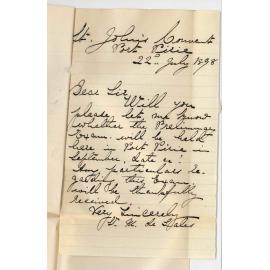 St. John's Convent
Port Pirie
22nd July 1898
Dear Sir
Will you
please let me know
whether the Preliminary
Exam. will be held
here in Port Pirie in
September, date &c:
Any particulars re-
garding this Exam
will be thankfully
received
Very Sincerely